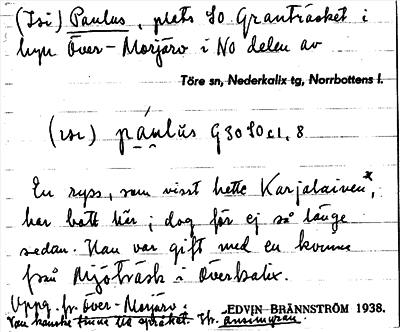 (Isi) Paulus, plats SO Granträsket i
byn Över-Morjärv i NO delen av
Töre sn, Nederkalix tg, Norrbottens l.
(ısı) páulŭs G 30 SO c 1, 8
En ryss, som visst hette Karjalainen x,
har bott här; dog för ej så länge
sedan. Han var gift med en kvinna
från Mjöträsk i Överkalix.
Uppg. fr. Över-Morjärv.
EDVIN BRÄNNSTRÖM 1938.
kanske finne